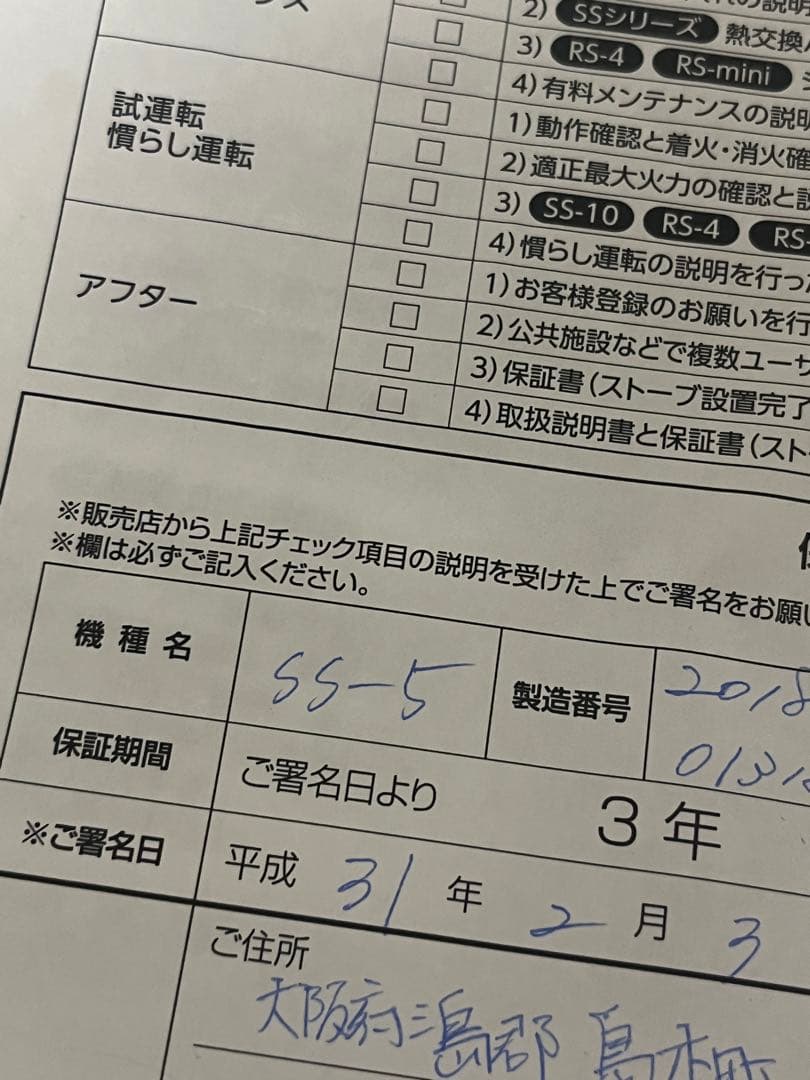 2) SSシリーズ 熱交換
3) RS-4 RS-mini
4)有料メンテナンスの説明
試運転
慣らし運転
1)動作確認と着火・消火確
2)適正最大火力の確認と説
3) SS-10 RS-4 RS-
4)慣らし運転の説明を行った
アフター
1)お客様登録のお願いを行
2)公共施設などで複数ユーザ
3)保証書(ストーブ設置完了
4)取扱説明書と保証書(スト
※販売店から上記チェック項目の説明を受けた上でご署名をお願い
※欄は必ずご記入ください。
機種名 SS-5 製造番号 2018
013
保証期間 ご署名日より 3年
※ご署名日 平成 31 年 2 月 3
ご住所
大阪府三島郡島本町